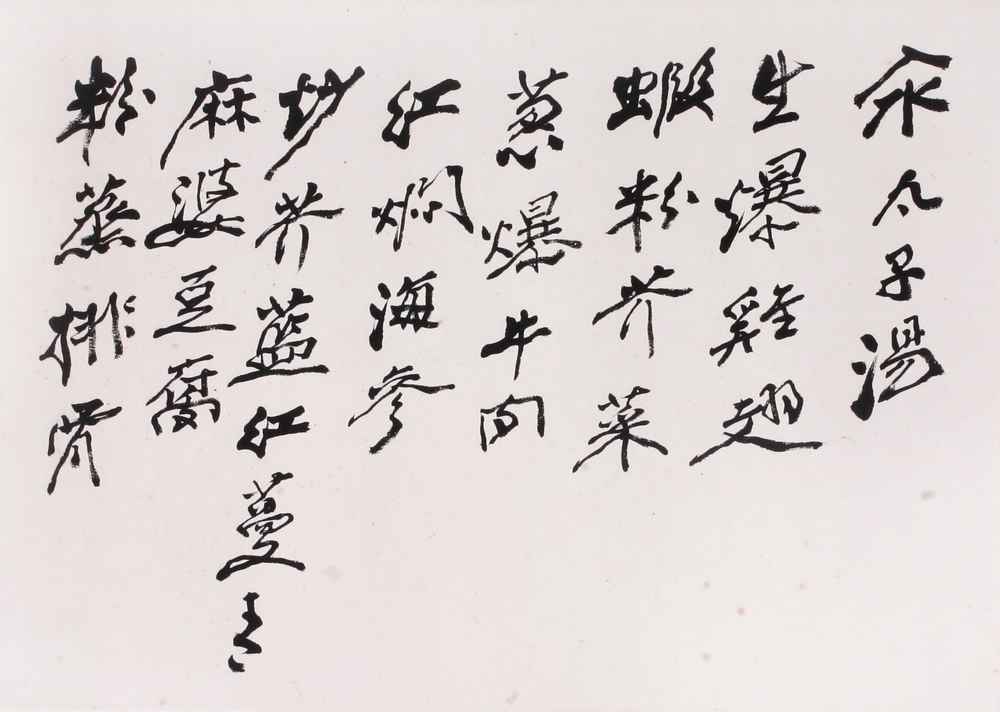 汆丸子湯
生爆雞翅
蝦粉芥菜
葱爆牛肉
紅燜海參
炒芥藍紅蔓青
麻婆豆腐
粉蒸排骨